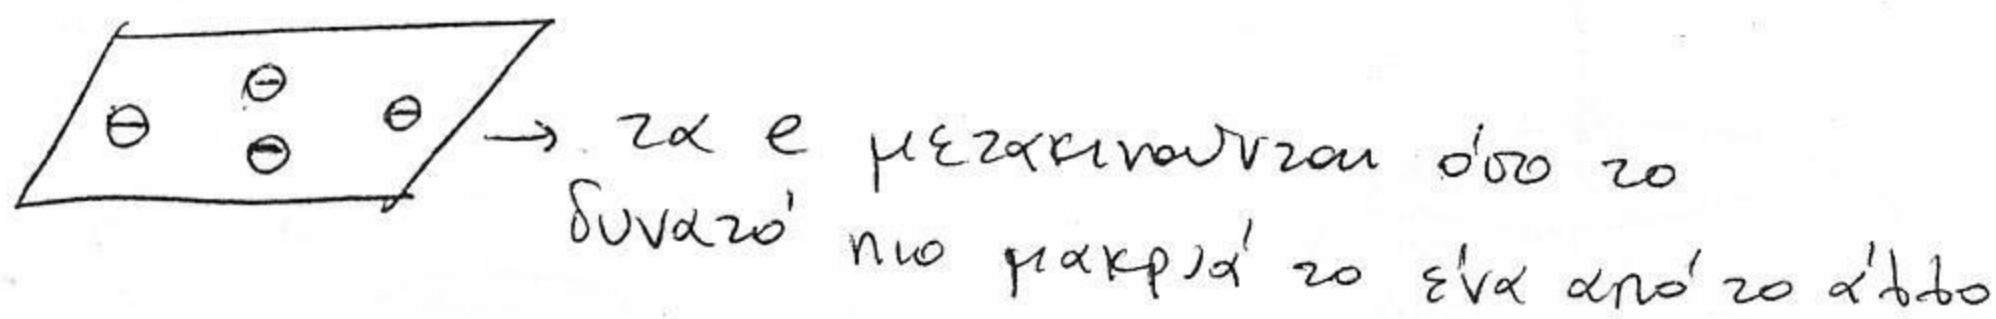 → τα e μετακινούνται όσο το
δυνατό πιο μακριά το ένα από το άλλο